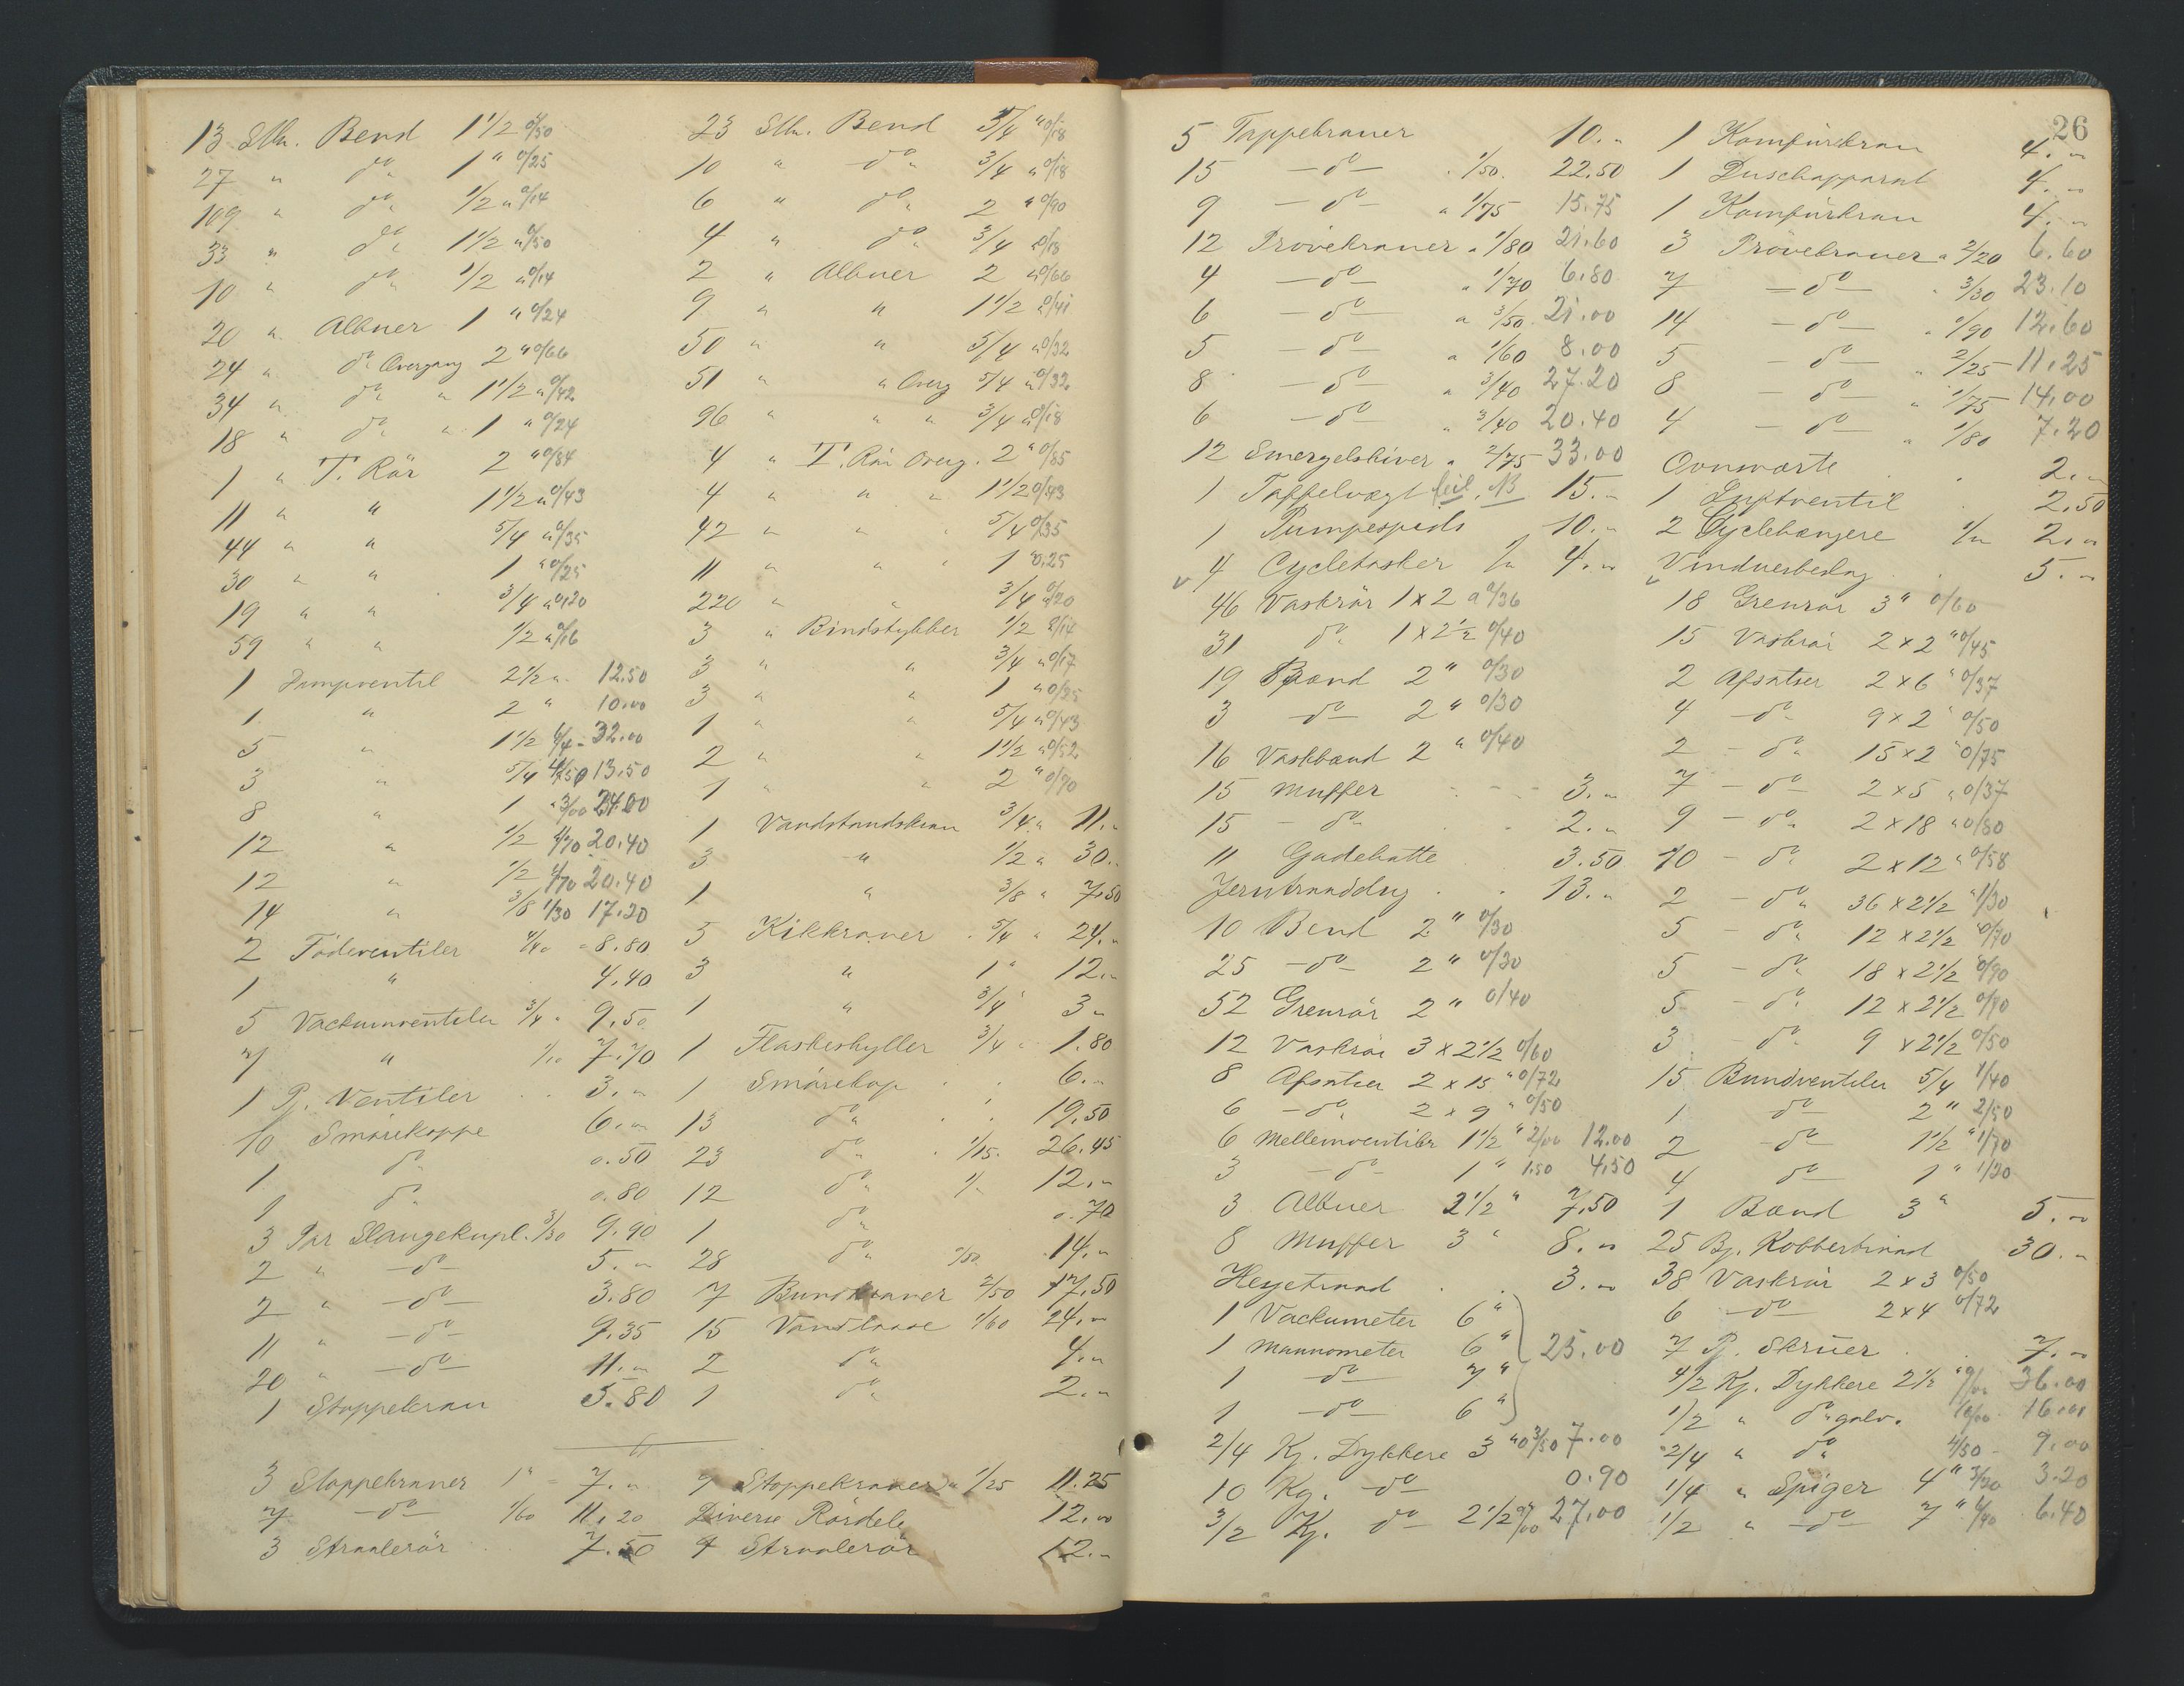 13 Stk. Bend 1 1/2 0/50
27 " do " 1 " 0/25
109 " do " 1/2 " 0/14
33 " do " 1 1/2 " 0/50
10 " do " 1/2 " 0/14
20 " Albuer 1 " 0/24
24 " do Overgang 2 " 0/66
34 " do " " 1 1/2 " 0/42
18 " do " " 1 " 0/24
1 " T. Rör 2 " 0/84
11 " " 1 1/2 " 0/43
44 " " 5/4 " 0/35
30 " " 1 " 0/25
19 " " 3/4 " 0,20
59 " " 1/2 " 0/16
1 Dampventil 2 1/2 " 12.50
1 " 2 " 10.00
5 " 1 1/2 6/4 - 32.00
3 " 5/4 4/50 13.50
8 " 1 " 3/00 24.00
12 " 1/2 1/70 20.40
12 " 1/2 1/70 20.40
14 " 3/8 1/30 17.20
2 Födeventiler 4/40 - 8.80
1 " 4.40
5 Vackumventiler 3/4 " 9.50
7 " 1/10 7.70
1 P. Ventiler . . 3. "
10 Smörekoppe 6. "
1 do " 0.50
1 do " 0.80
3 Par Slangekupl. 3/30 9.90
2 " -do- 5. "
2 " -do- 3.80
11 " -do- 9.35
20 " -do- 11. "
1 Stoppekran 5.80
3 Stoppekraner 1 " 7. "
7 -do- 1/60 11.20
3 Straalerör 7.50
23 Stk. Bend 5/4 " 0/18
10 " -do " 3/4 " 0/18
6 " do " 2 " 0/90
4 " do " 3/4 0/18
2 " Albuer 2 " 0/66
9 " " 1 1/2 0/41
50 " " 5/4 " 0/32
51 " " Overg 5/4 " 0/32
96 " " " 3/4 " 0/18
4 " T. Rör Overg. 2 " 0/85
4 " " " 1 1/2 0/43
42 " " " 5/4 0/35
11 " " " 1 " 0.25
220 " " 3/4 0/20
3 " Bindstykker 1/2 0/14
3 " " 3/4 " 0/17
3 " " 1 " 0/25
1 " " 5/4 " 0/43
2 " " 1 1/2 " 0/52
1 " " 2 " 0/70
1 Vandstandskran 3/4 " 11. "
3 " 1/2 " 30. "
1 " 3/8 " 7.50
5 Kikkraner . 5/4 " 24. "
3 " 1 " 12. "
1 " 3/4 3 "
1 Flaskeskyller 3/4 " 1.80
1 Smörekop . . 6. "
13 do " . . 19.50
23 do " . 1/15. 26.45
12 do " 1/" 12. "
1 do " 0.70
28 do " 0/50. 14. "
7 Bundkraner 2/50 17.50
15 Vandlaase 1/60 24. "
2 do " 4. "
1 do " 2. "
9 Stoppekraner " 1/25 11.25
Diverse Rördele 12. "
4 Straalerör 12. "
26
5 Tappekraner 10. "
15 -do- . 1/50. 22.50
9 -do- " 1/75 15.75
12 Prövekraner " 1/80 21.60
4 -do- " 1/70 6.80
6 -do- a 3/50 21.00
5 -do- " 1/60 8.00
8 -do- " 3/40 27.20
6 -do- " 3/40 20.40
12 Smergelskiver " 2/75 33.00
1 Taffelvægt feil. NB 15. "
1 Pumpespids 10. "
4 Cycletasker 1/" 4. "
46 Vaskrör 1 x 2 a 0/36
31 do " 1 x 2 1/2 0/40
19 Bænd 2 " 0/30
3 -do- 2 " 0/30
16 Vaskbænd 2 " 0/40
15 Muffer 3. "
15 -do " 2. "
11 Gadehatte 3.50
Jerntraaddug . . 13. "
10 Bend 2 " 0/30
25 -do- 2 " 0/30
52 Grenrör 2 " 0/40
12 Vaskrör 3 x 2 1/2 0/60
8 Afsatser 2 x 15 " 0/72
6 -do " 2 x 9 " 0/50
6 Mellemventiler 1 1/2 " 2/00 12.00
3 -do- 1 " 1.50 4.50
3 Albuer 2 1/2 " 7.50
8 Muffer 3 " 8. "
Heyetraad . . 3. "
1 Vackumeter 6 "
1 Mannometer 6 " 25.00
1 -do- 7 "
1 -do- 6 "
2/4 Kj. Dykkere 3 " a 3/50 7.00
10 Kg. -do- 0.90
3/2 Kj. do- 2 1/2 9/00 27.00
1 Komfürkran 4. "
1 Duschapparat 4. "
1 Komfürkran 4. "
3 Prövekraner " 2/20 6.60
7 -do- " 3/30 23.10
14 -do- " 0/90 12.60
5 -do- " 2/25 11.25
8 -do- " 1/75 14.00
4 -do- " 1/80 7.20
Ovnsværte . 2. "
1 Luftventil . 2.50
2 Cyclehængere 1/" 2. "
Vinduesbeslag . . 5. "
18 Grenrör 3 " 0/60
15 Vaskrör 2 x 2 " 0/45
2 Afsatser 2 x 6 " 0/37
4 -do " 9 x 2 " 0/50
2 -do " 15 x 2 " 0/75
7 -do- 2 x 5 " 0/37
9 -do " 2 x 18 " 0/80
10 -do " 2 x 12 " 0/58
2 -do " 36 x 2 1/2 " 1/30
5 -do " 12 x 2 1/2 " 0/70
5 -do " 18 x 2 1/2 0/90
5 -do " 12 x 2 1/2 0/90
3 do " 9 x 2 1/2 0/50
15 Bundventiler 5/4 1/40
1 do- 2 " 2/50
2 -do- 1 1/2 " 1/70
4 do- 1 " 1/20
1 Bænd 3 " 5. "
25 Bj. Kobbertraad 30. "
38 Vaskrör 2 x 3 0/50
6 -do- 2 x 4 0/72
7 P. Skruer . . 7. "
4/2 Kj. Dykkere 2 1/2 " 9/00 36.00
1/2 " do " galv. 16/00 16.00
2/4 " do " 4/50 - 9.00
1/4 " Spiger 4 " 3/20 3.20
1/2 " -do- 7 " 6/40 6.40